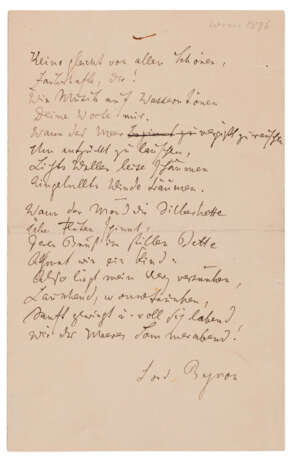 Wien 1896
Keine gleicht von allen Schönen,
Zauberhafte, dir!
Wie Musik auf Wassern tönen
Deine Worte mir.
Wann das Meer vergißt zu rauschen
Um entzückt zu lauschen,
Lichte Wellen leise schäumen
Eingelullte Winde träumen.
Wann der Mond die Silberkette
über Fluten spinnt,
Deren Brust im stillen Bette
Athmet wie ein Kind:
Also liegt mein Herz versunken,
Lauschend, wonnetrunken,
Sanft gewiegt u. voll sich labend
wie des Meeres Sommerabend!
Lord Byron